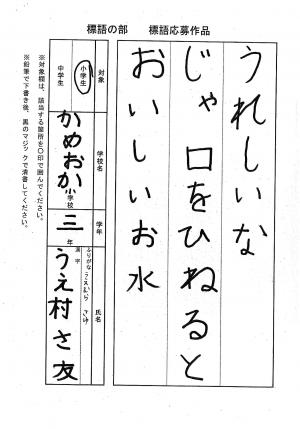 標語の部　標語応募作品
うれしいな
じゃ口をひねると
おいしいお水
対象
小学生
中学生
学校名
かめおか小学校
学年
三年
氏名
ふりがな うえむら さゆ
漢字 うえ村さ友
※対象欄は、該当する箇所を〇印で囲んでください。
※鉛筆で下書き後、黒のマジックで清書してください。